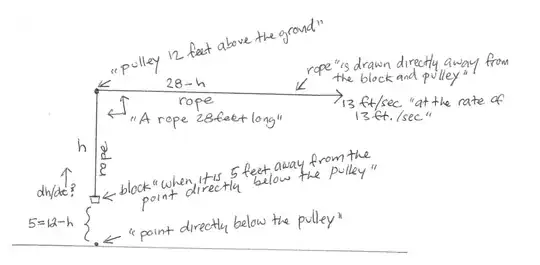 "pulley 12 feet above the ground"
28-h
rope "is drawn directly away from
the block and pulley"
rope
13 ft/sec "at the rate of
13 ft./sec"
"A rope 28 feet long"
h
rope
dh/dt?
block "when it is 5 feet away from the
point directly below the pulley"
5=12-h
"point directly below the pulley"